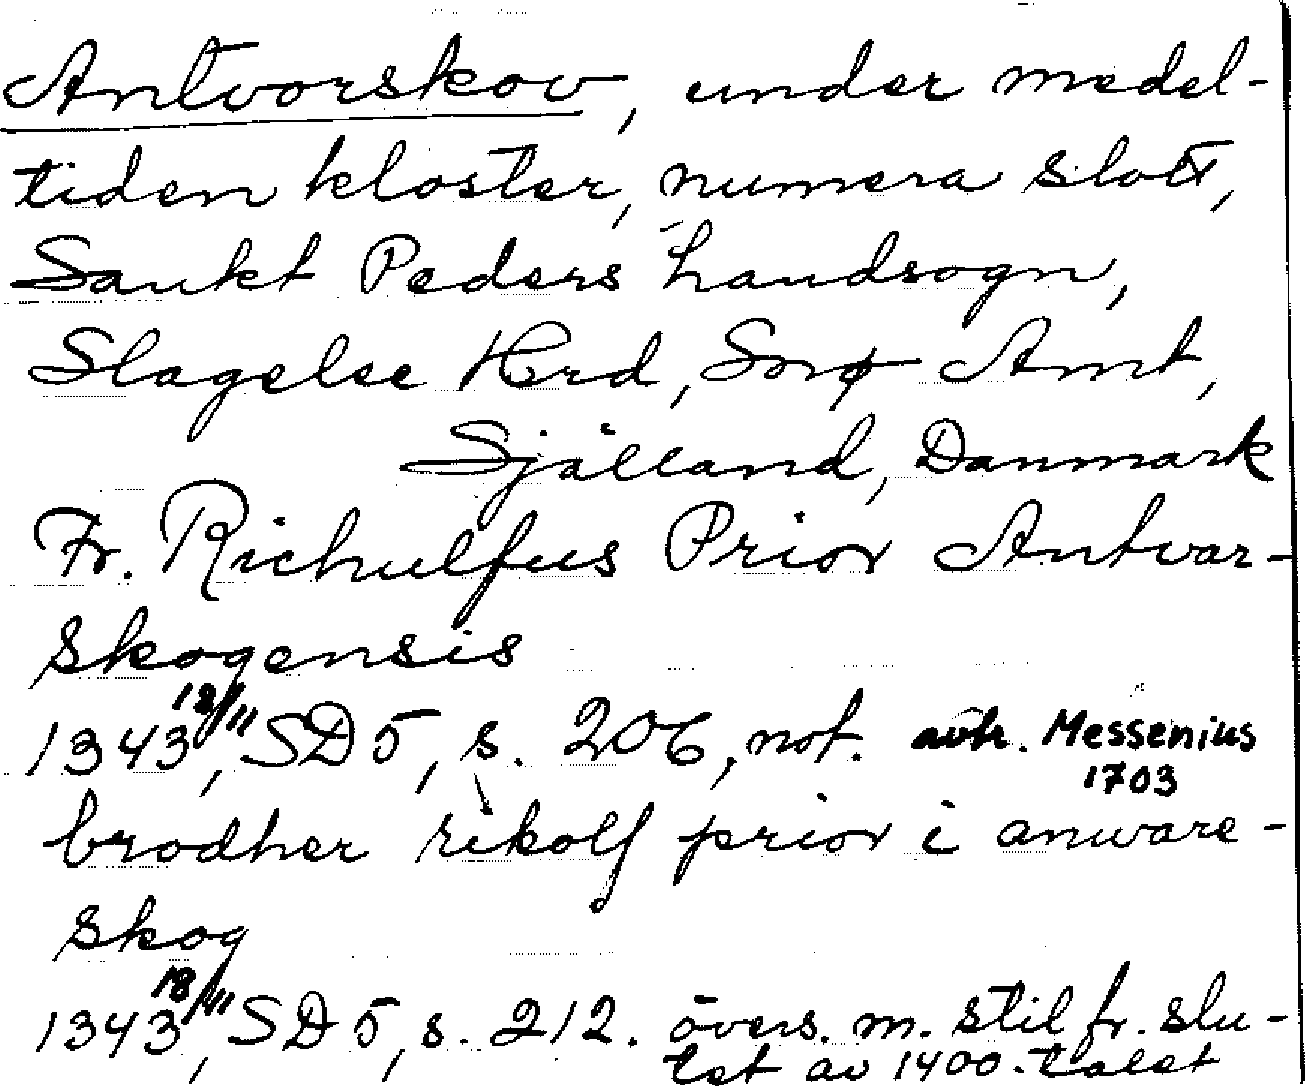 Antvorskov, under medel-
tiden kloster, numera slott,
Sankt Peders handsogn,
Slagelse Hrd, Sorø Amt,
Själland, Danmark
Fr. Richulfus Prior Antvar-
skogensis
1343 18/11, SD 5, s. 206, not. avtr. Messenius
1703
brodher rikolf prior i anware-
skog
1343 18/11, SD 5, s. 212. övers. m. stil fr. slu-
tet av 1400-talet